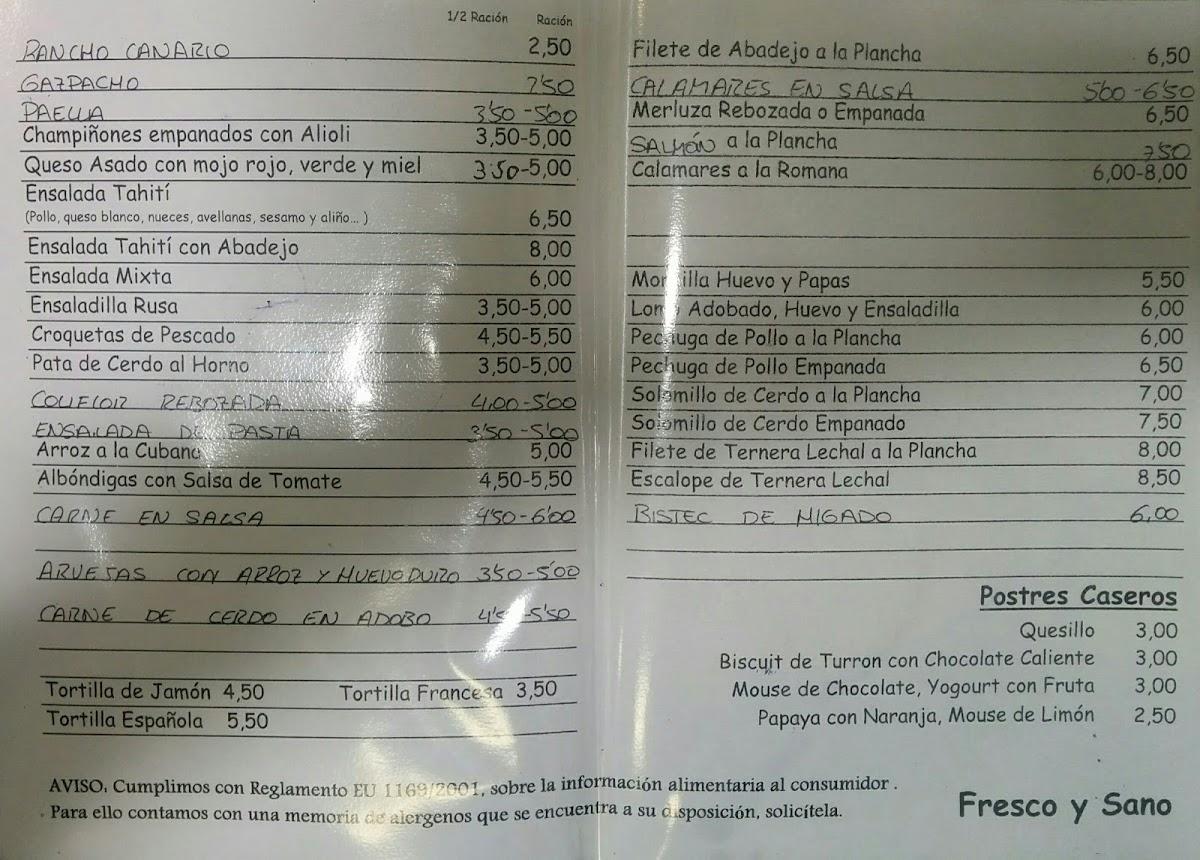 1/2 Ración Ración
RANCHO CANARIO 2,50
GAZPACHO 2'50
PAELLA 3'50-5'00
Champiñones empanados con Alioli 3,50-5,00
Queso Asado con mojo rojo, verde y miel 3'50-5,00
Ensalada Tahití
(Pollo, queso blanco, nueces, avellanas, sesamo y aliño... ) 6,50
Ensalada Tahití con Abadejo 8,00
Ensalada Mixta 6,00
Ensaladilla Rusa 3,50-5,00
Croquetas de Pescado 4,50-5,50
Pata de Cerdo al Horno 3,50-5,00
COLIFLOR REBOZADA 4,00-5'00
ENSALADA DE PASTA 3'50-5'00
Arroz a la Cubana 5,00
Albóndigas con Salsa de Tomate 4,50-5,50
CARNE EN SALSA 4'50-6'00
ARVEJAS CON ARROZ Y HUEVO DURO 3'50-5'00
CARNE DE CERDO EN ADOBO 4'50-5'50
Tortilla de Jamón 4,50 Tortilla Francesa 3,50
Tortilla Española 5,50
Filete de Abadejo a la Plancha 6,50
CALAMARES EN SALSA 5'00-6'50
Merluza Rebozada o Empanada 6,50
SALMÓN a la Plancha 7'50
Calamares a la Romana 6,00-8,00
Morcilla Huevo y Papas 5,50
Lomo Adobado, Huevo y Ensaladilla 6,00
Pechuga de Pollo a la Plancha 6,00
Pechuga de Pollo Empanada 6,50
Solomillo de Cerdo a la Plancha 7,00
Solomillo de Cerdo Empanado 7,50
Filete de Ternera Lechal a la Plancha 8,00
Escalope de Ternera Lechal 8,50
BISTEC DE HIGADO 6,00
Postres Caseros
Quesillo 3,00
Biscuit de Turron con Chocolate Caliente 3,00
Mouse de Chocolate, Yogourt con Fruta 3,00
Papaya con Naranja, Mouse de Limón 2,50
AVISO. Cumplimos con Reglamento EU 1169/2001, sobre la información alimentaria al consumidor .
. Para ello contamos con una memoria de alergenos que se encuentra a su disposición, solicítela.
Fresco y Sano